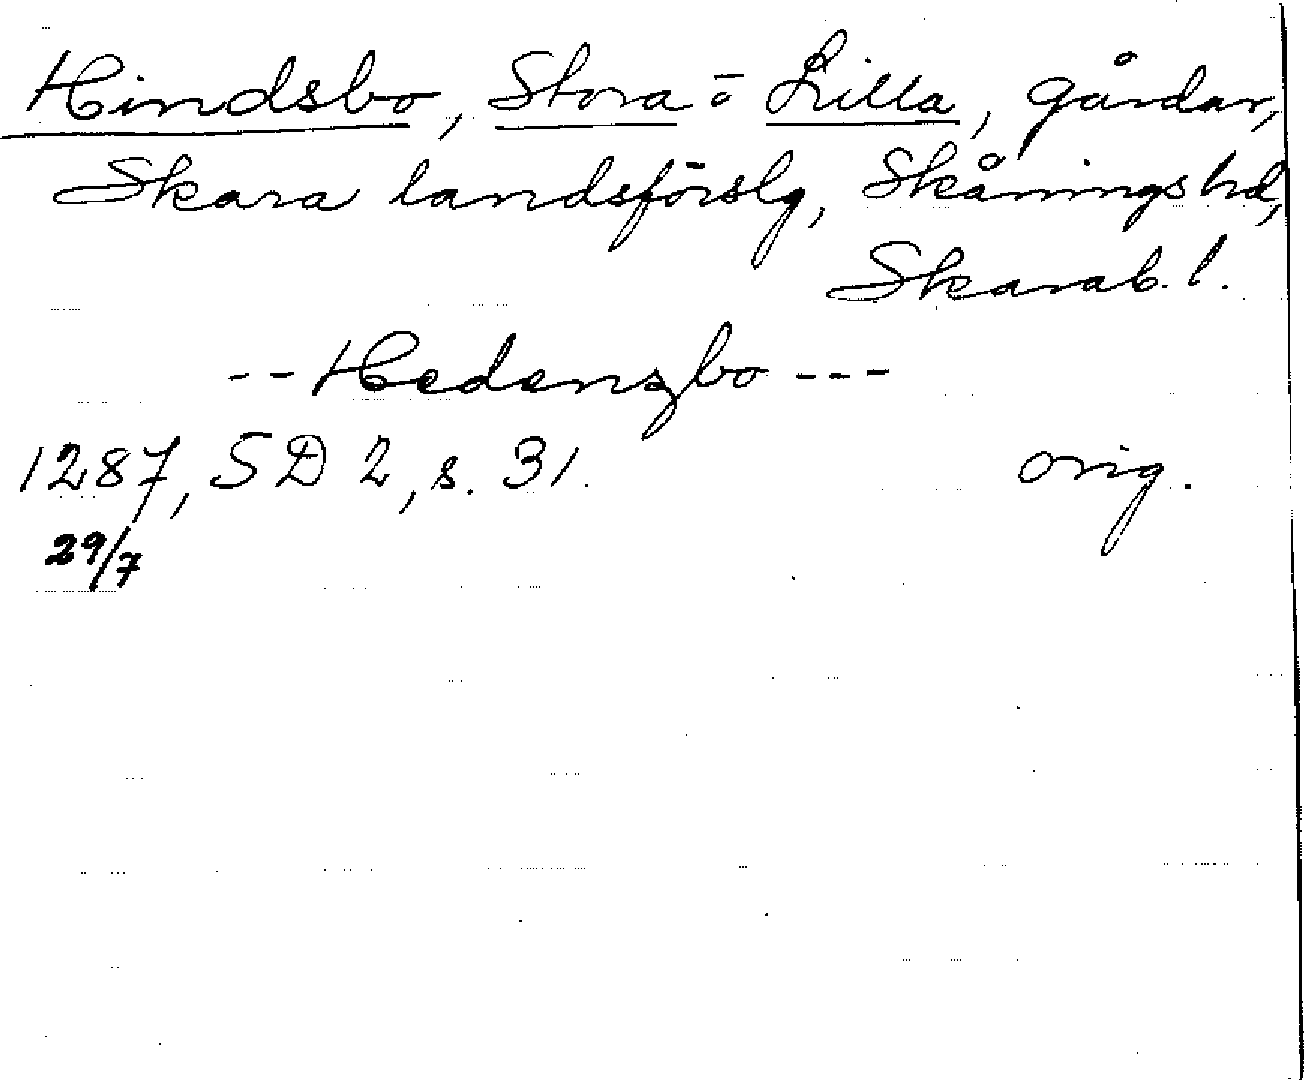 Hindsbo, Stora o Lilla, gårdar,
Skara landsförslg, Skånings hd,
Skarab. l.
-- Hedenzbo ---
1287, SD 2, s. 31. orig.
29/7